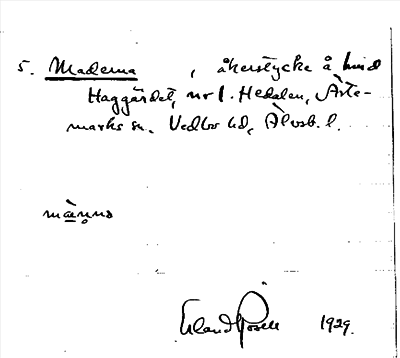 5. Maderna , åkerstycke å
Haggärdet, nr 1. Hedalen, Årte-
marks sn. Vedbo hd, Älvsb. l.
männa
Erland Rosell 1929.